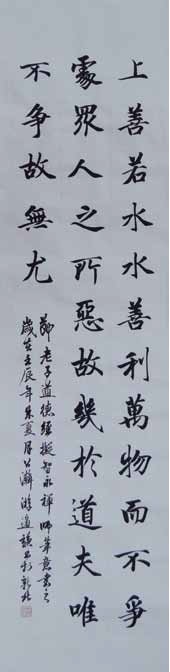 上善若水水善利萬物而不爭
處眾人之所惡故幾於道夫唯
不爭故無尤
節老子道德經擬智永禪師筆意書之
歲在壬辰年末夏